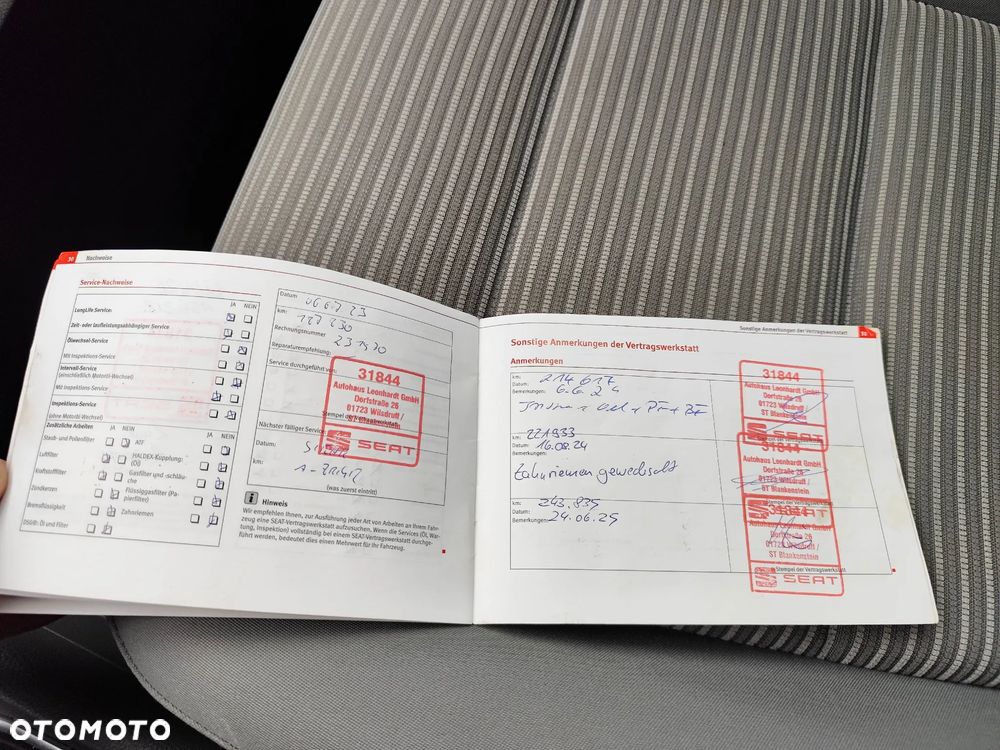 30 Nachweise
Service-Nachweise
JA NEIN
LongLife Service:
Zeit- oder laufleistungsabhängiger Service
Ölwechsel-Service
Mit Inspektions-Service
Intervall-Service
(einschließlich Motoröl-Wechsel)
Mit Inspektions-Service
Inspektions-Service
(ohne Motoröl-Wechsel)
Zusätzliche Arbeiten JA NEIN JA NEIN
Staub- und Pollenfilter ATF
Luftfilter HALDEX-Kupplung:
(Öl)
Kraftstofffilter Gasfilter und -schläu-
che
Zündkerzen Flüssiggasfilter (Pa-
pierfilter)
Bremsflüssigkeit Zahnriemen
DSG®: Öl und Filter
Datum
km:
Rechnungsnummer
Reparaturempfehlung:
Service durchgeführt von:
31844
Autohaus Leonhardt GmbH
Dorfstraße 26
01723 Wilsdruff /
SEAT
Stempel der
Nächster fälliger Service:
Datum:
km:
(was zuerst eintritt)
i Hinweis
Wir empfehlen Ihnen, zur Ausführung jeder Art von Arbeiten an Ihrem Fahr-
zeug eine SEAT-Vertragswerkstatt aufzusuchen. Wenn die Services (Öl, War-
tung, Inspektion) vollständig bei einem SEAT-Vertragswerkstatt durchge-
führt werden, bedeutet dies einen Mehrwert für Ihr Fahrzeug.
Sonstige Anmerkungen der Vertragswerkstatt
Sonstige Anmerkungen der Vertragswerkstatt
Anmerkungen
km: 214 617
Datum: 6.6.24
Bemerkungen:
31844
Autohaus Leonhardt GmbH
Dorfstraße 26
01723 Wilsdruff /
ST Blankenstein
SEAT
km: 221933
Datum: 16.08.24
Bemerkungen:
Zahnriemen gewechselt
31844
Autohaus Leonhardt GmbH
Dorfstraße 26
01723 Wilsdruff /
ST Blankenstein
Stempel der Vertragswerkstatt
km: 243.835
Datum: 24.06.25
Bemerkungen:
31844
Autohaus Leonhardt GmbH
Dorfstraße 26
01723 Wilsdruff /
ST Blankenstein
Stempel der Vertragswerkstatt
SEAT
OTOMOTO